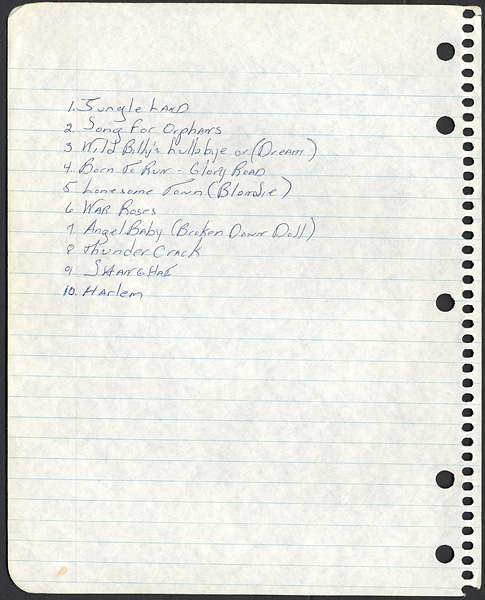 1. Jungle LAND
2. Song For Orphans
3 Wild Billy's Lullabye or (Dream)
4. Born To Run - Glory ROAD
5 Lonesome Town (Blondie)
6 WAR Roses
7 Angel Baby (Broken Down Doll)
8 Thunder Crack
9 SHANGHAE
10. Harlem